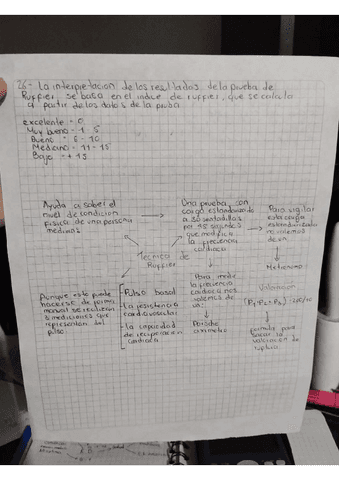 26- La interpretacion de los resultados de la prueba de
Ruffier se basa en el indice de ruffier, que se calcula
a partir de los datos de la
excelente = 0
Muy bueno = 1 - 5
Bueno = 6 - 10
Mediano = 11 - 15
Bajo = + 15
Ayuda a saber el
nivel de condicion
fisica de una persona
medimos
Una prueba con
carga estandarizada
a 30 sentadillas
por 45 segundos
que modifica
la frecuencia
cardiaca
Para vigilar
esta carga
estandarizada
nos valemos
de un
Metronomo
Tecnica de
Ruffier
Aunque esto puede
hacerse de forma
manual se requieren
3 mediciones que
representan del
pulso
Pulso basal
- la resistencia
cardiovascular
- la capacidad
de recuperacion
cardiaca
Para medir
la frecuencia
cardiaca nos
valemos de
un
Valoracion
(P1+P2+P3) - 200/10
formula para
sacar la
valoracion de